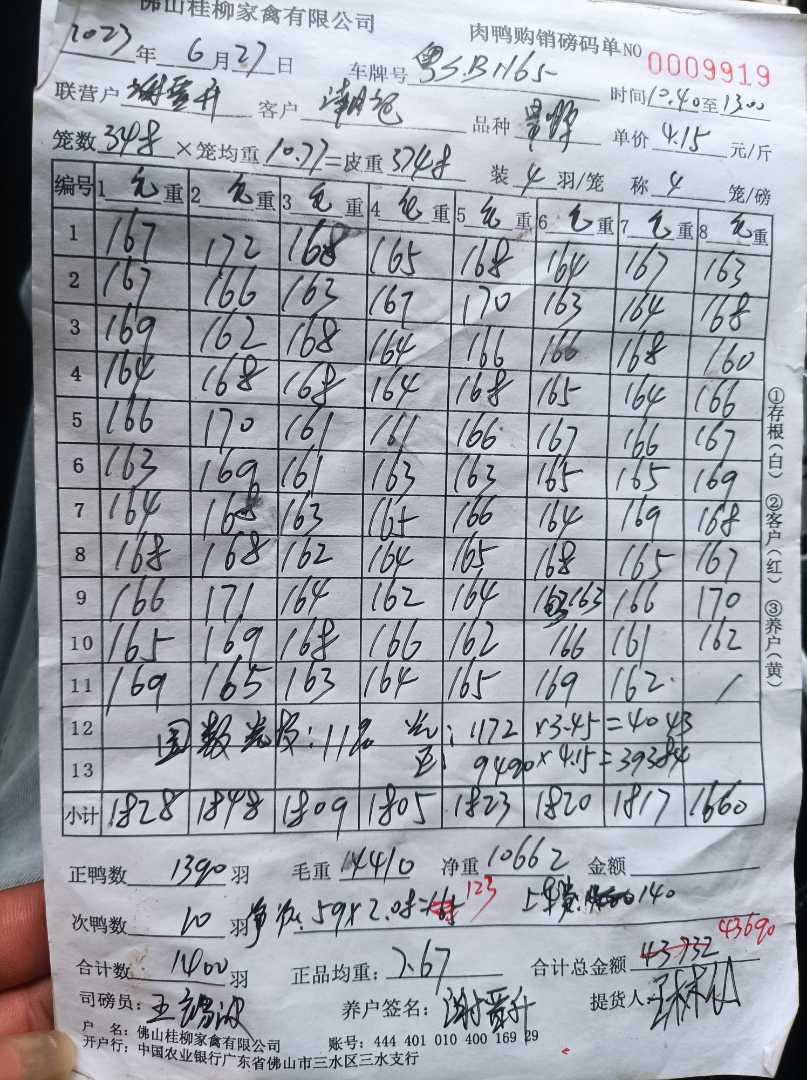 佛山桂柳家禽有限公司 肉鸭购销磅码单NO 0009919
2023年6月27日 车牌号 粤S.B1165
联营户 谢晋升 客户 时间12.40至1300
品种 单价 4.15 元/斤
笼数 348 ×笼均重 10.77 =皮重 3748 装 4 羽/笼 称 4 笼/磅
编号 1 毛重 2 毛重 3 毛重 4 毛重 5 毛重 6 毛重 7 毛重 8 毛重
1 167 172 168 165 168 164 167 163
2 167 166 163 167 170 163 164 168
3 169 162 168 164 166 166 168 160
4 164 168 168 164 168 165 164 166
5 166 170 161 161 166 167 166 167
6 163 169 161 163 163 165 165 169
7 164 168 163 165 166 164 169 168
8 168 168 162 164 165 168 165 167
9 166 171 164 162 164 163 166 170
10 165 169 168 166 162 166 161 162
11 169 165 163 164 165 169 162 /
12 1172 ×3.45=4043
13 9490×4.15=39384
小计 1828 1848 1809 1805 1823 1820 1817 1660
正鸭数 1390 羽 毛重 14410 净重 10662 金额
次鸭数 10 羽 59×2.08= 123 140
合计数 1400 羽 正品均重: 7.67 合计总金额 43732 43690
司磅员: 养户签名: 谢晋升 提货人:
户 名: 佛山桂柳家禽有限公司 账号: 444 401 010 400 169 29
开户行: 中国农业银行广东省佛山市三水区三水支行
①存根(白) ②客户(红) ③养户(黄)